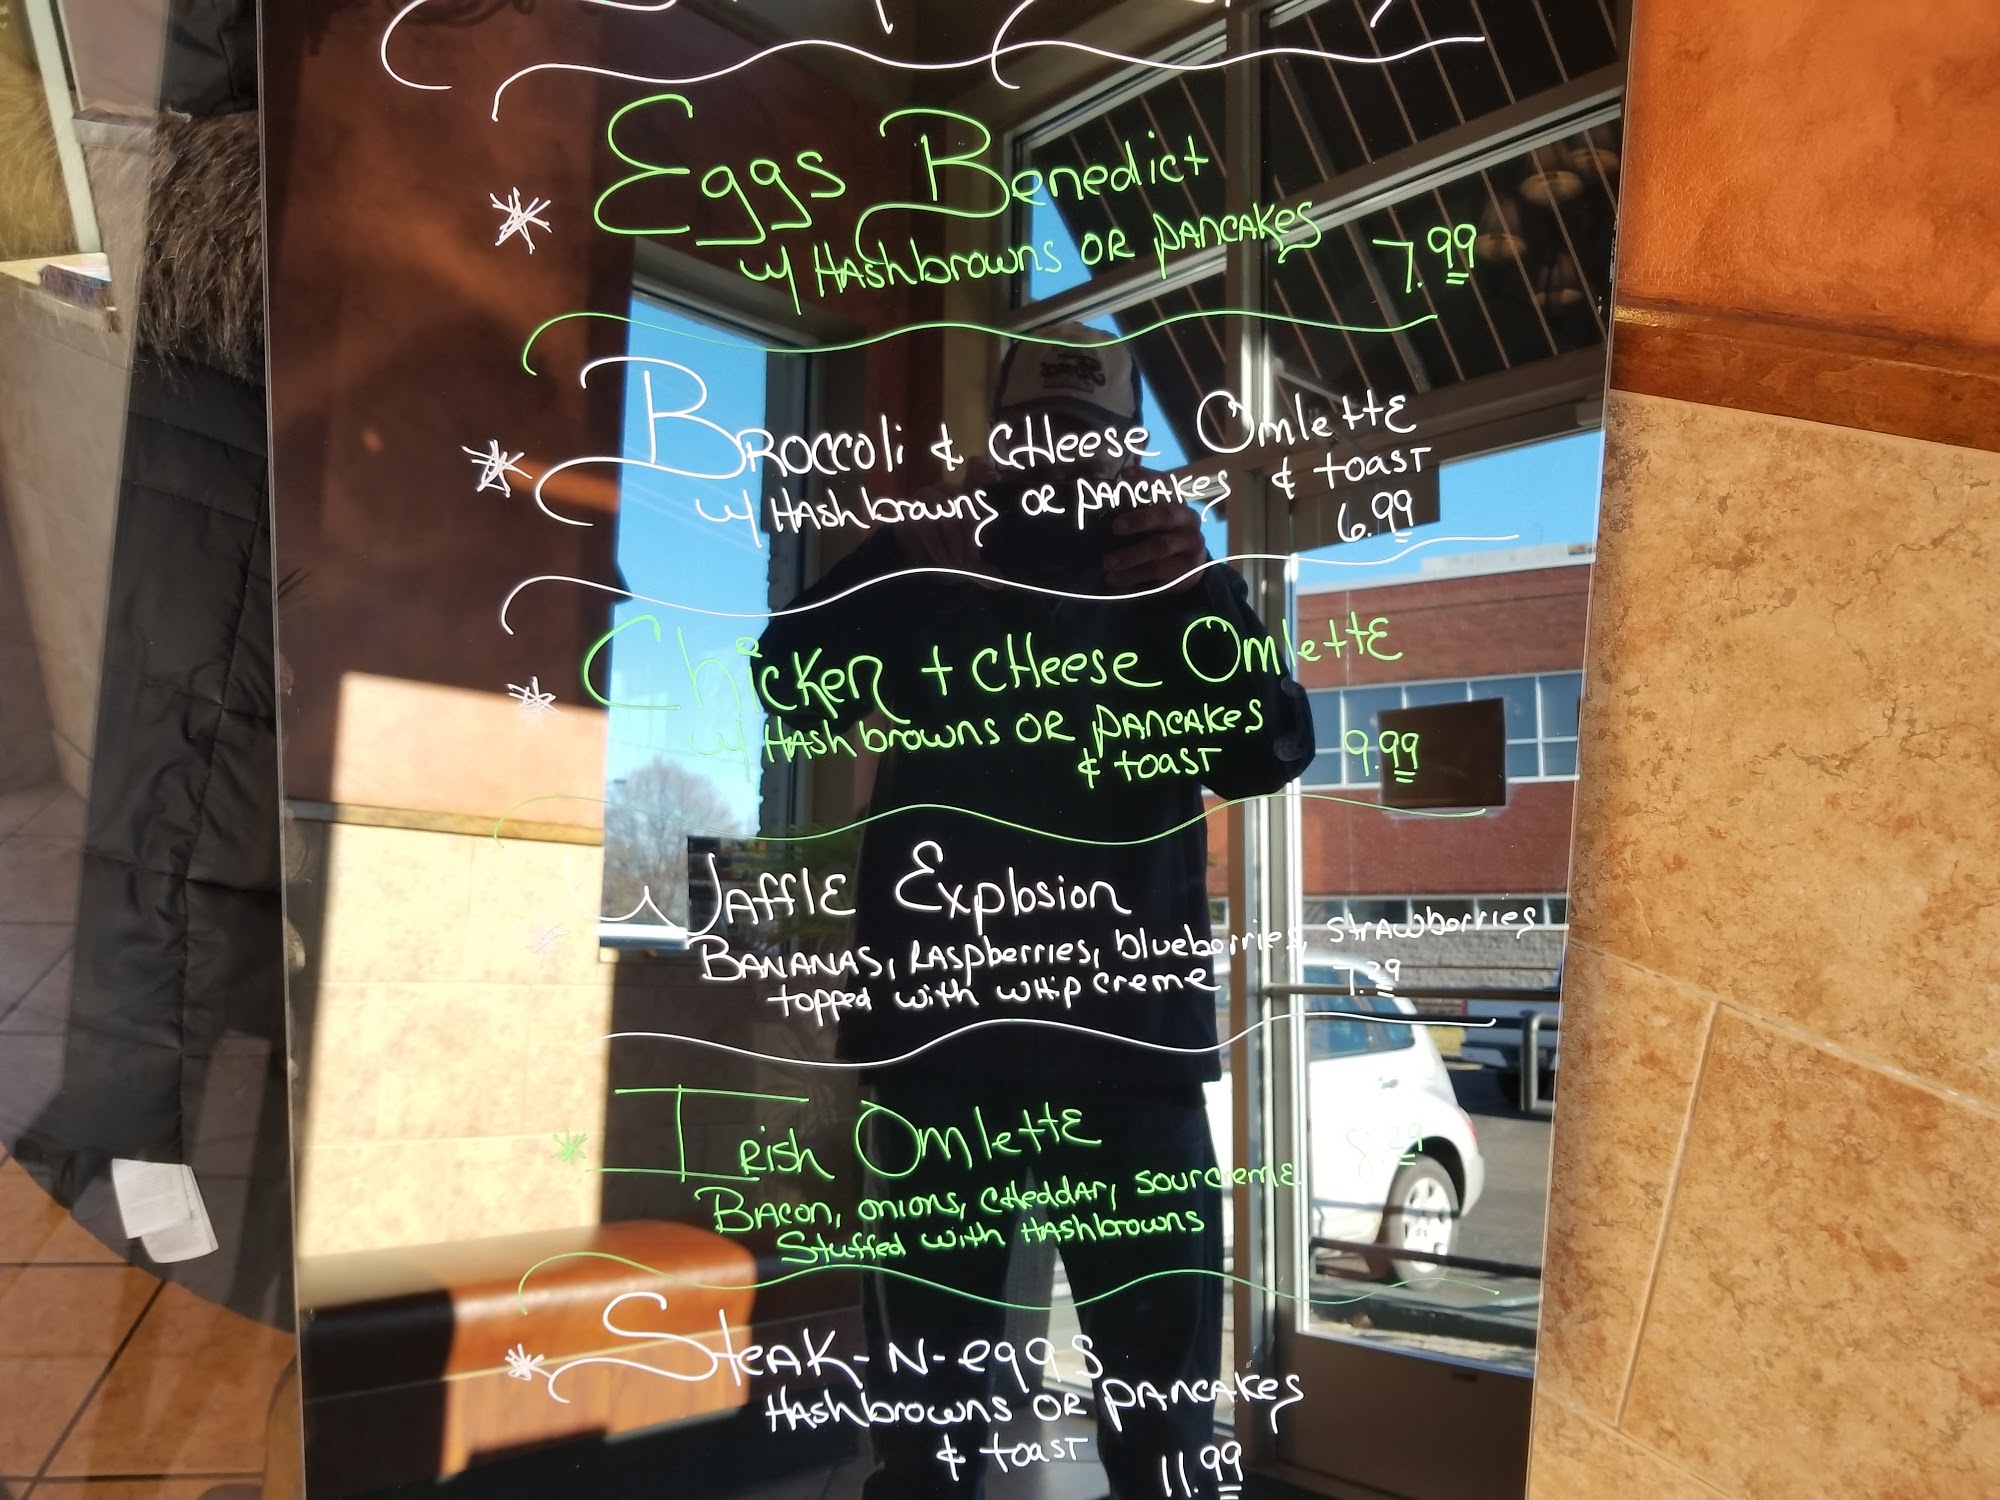 Eggs Benedict
w/ Hashbrowns or pancakes 7.99
Broccoli & Cheese Omlette
w/ Hashbrowns or pancakes & toast
6.99
Chicken + Cheese Omlette
w/ Hash browns or pancakes
& toast 9.99
Waffle Explosion
Bananas, raspberries, blueberries, strawberries
topped with whip creme 7.29
Irish Omlette 8.29
Bacon, onions, cheddar, sourcreme
Stuffed with Hashbrowns
Steak-N-eggs
Hashbrowns or pancakes
& toast
11.99